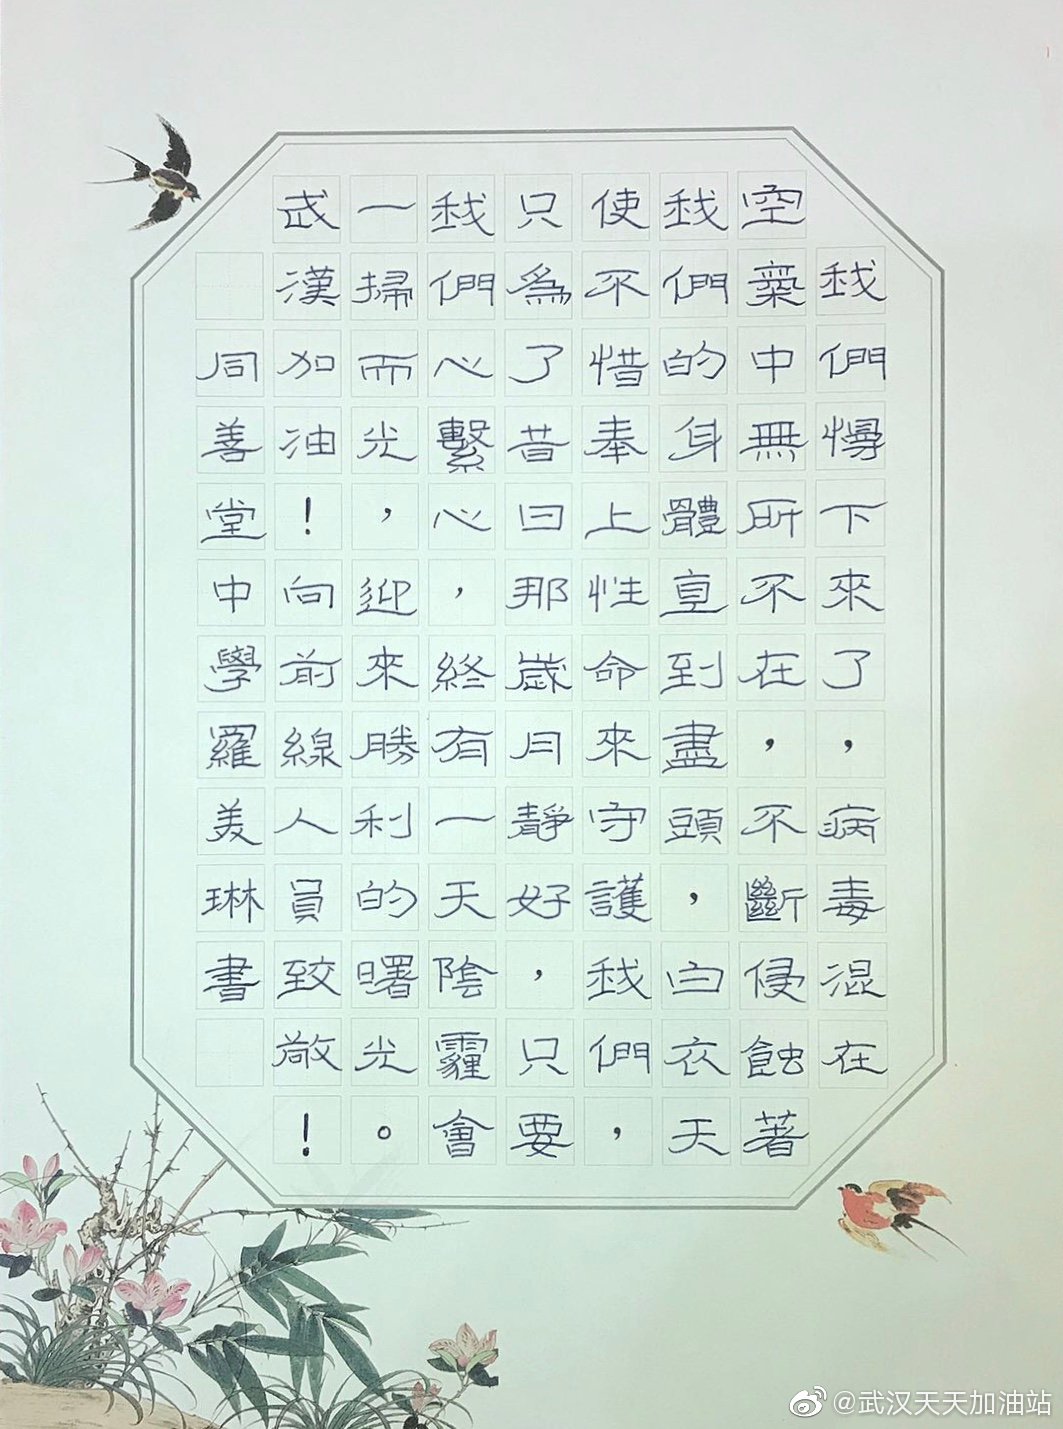 我們慢下來了，病毒混在
空氣中無所不在，不斷侵蝕著
我們的身體直到盡頭，白衣天
使不惜奉上性命來守護我們，
只為了昔日那歲月靜好，只要
我們心繫心，終有一天陰霾會
一掃而光，迎來勝利的曙光。
武漢加油！向前線人員致敬！
同善堂中學羅美琳書
@武汉天天加油站